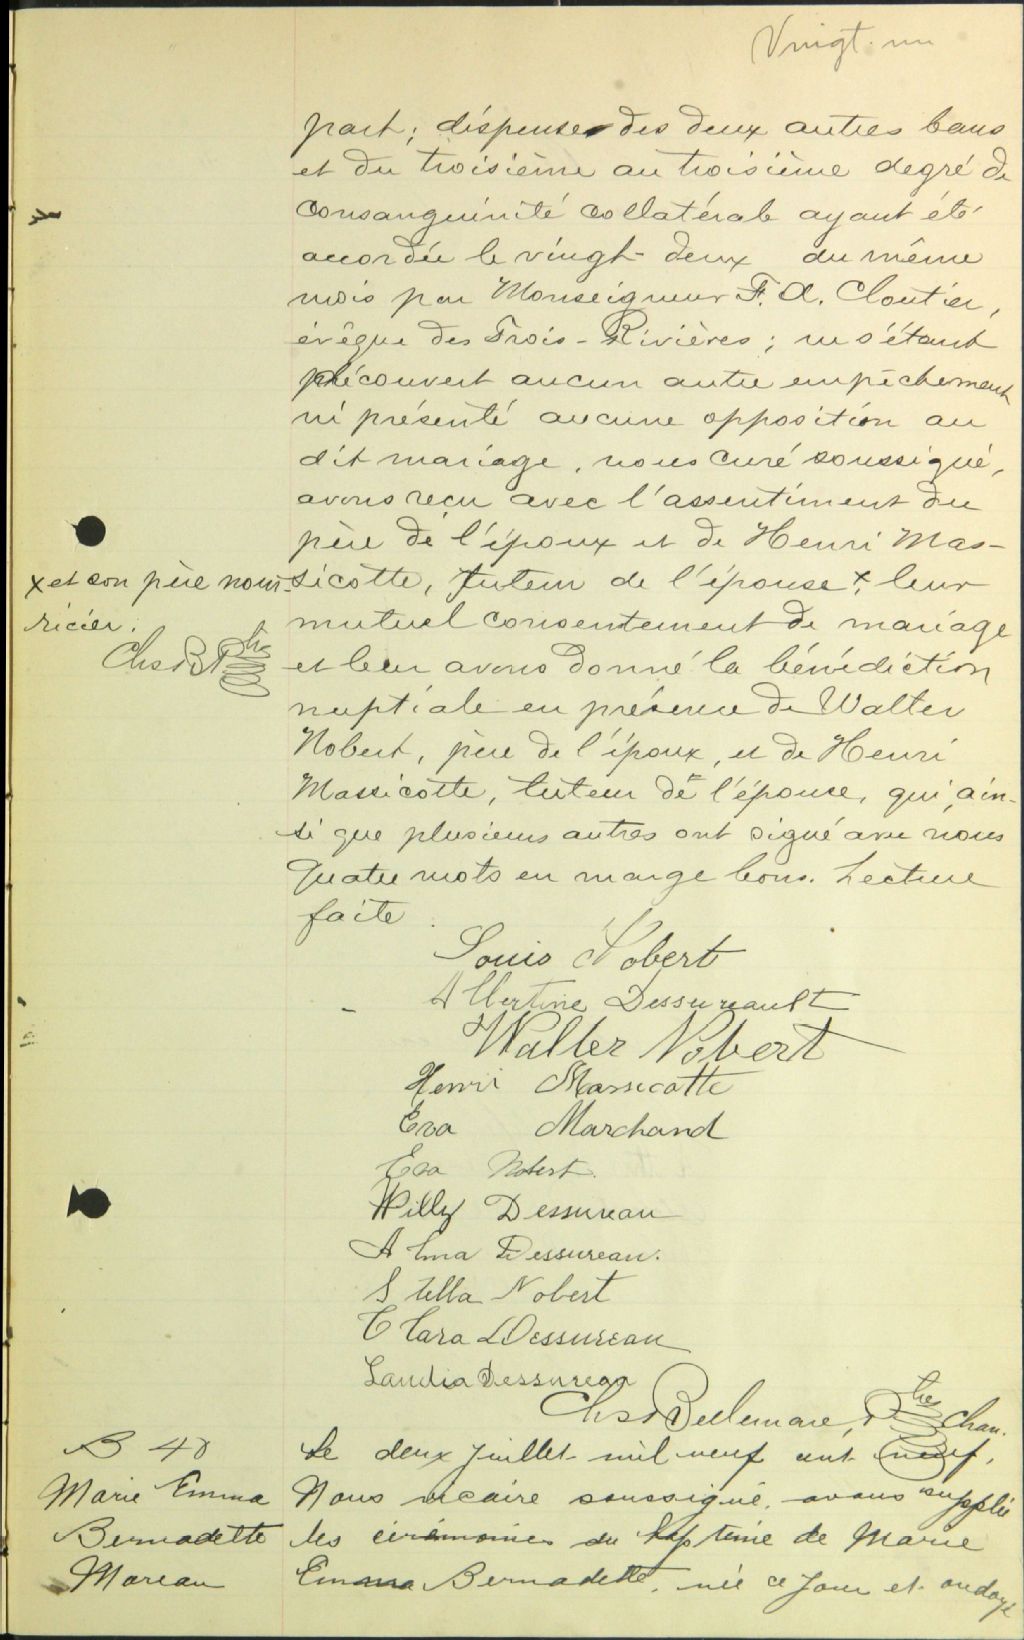 Vingt-un
part; dispense des deux autres bans
et du troisième au troisième degré de
consanguinité collatérale ayant été
accordée le vingt-deux du même
mois par Monseigneur F. X. Cloutier,
évêque des Trois-Rivières; ne s'étant
découvert aucun autre empêchement
ni présenté aucune opposition au
dit mariage, nous curé soussigné,
avons reçu avec l'assentiment du
père de l'époux et de Henri Mas-
x et son père nour-
ricier.
Chs B. Ptre
sicotte, tuteur de l'épouse x, leur
mutuel consentement de mariage
et leur avons donné la bénédiction
nuptiale en présence de Walter
Nobert, père de l'époux, et de Henri
Massicotte, tuteur de l'épouse, qui, ain-
si que plusieurs autres ont signé avec nous
Quatre mots en marge bons. Lecture
faite
Louis Nobert
Albertine Dessureault
Walter Nobert
Henri Massicotte
Eva Marchand
Eva Nobert
Willy Dessureau
Alma Dessureau.
Stella Nobert
Clara Dessureau
Laudia Dessureau
Chs Bellemare, Ptre Chan.
B 40
Marie Emma
Bernadette
Moreau
Le deux juillet mil neuf cent neuf,
Nous vicaire soussigné, avons supplée
les cérémonies du baptême de Marie
Emma Bernadette, née ce jour et ondoyé